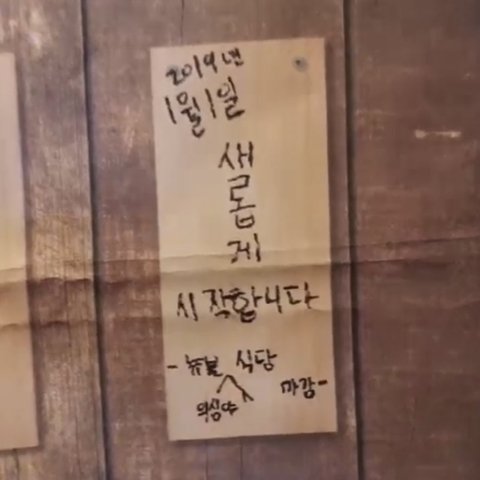 2019년
1월 1일
샐
롭
게
시작합니다
- 뉴본 식당
의심야
마감 -